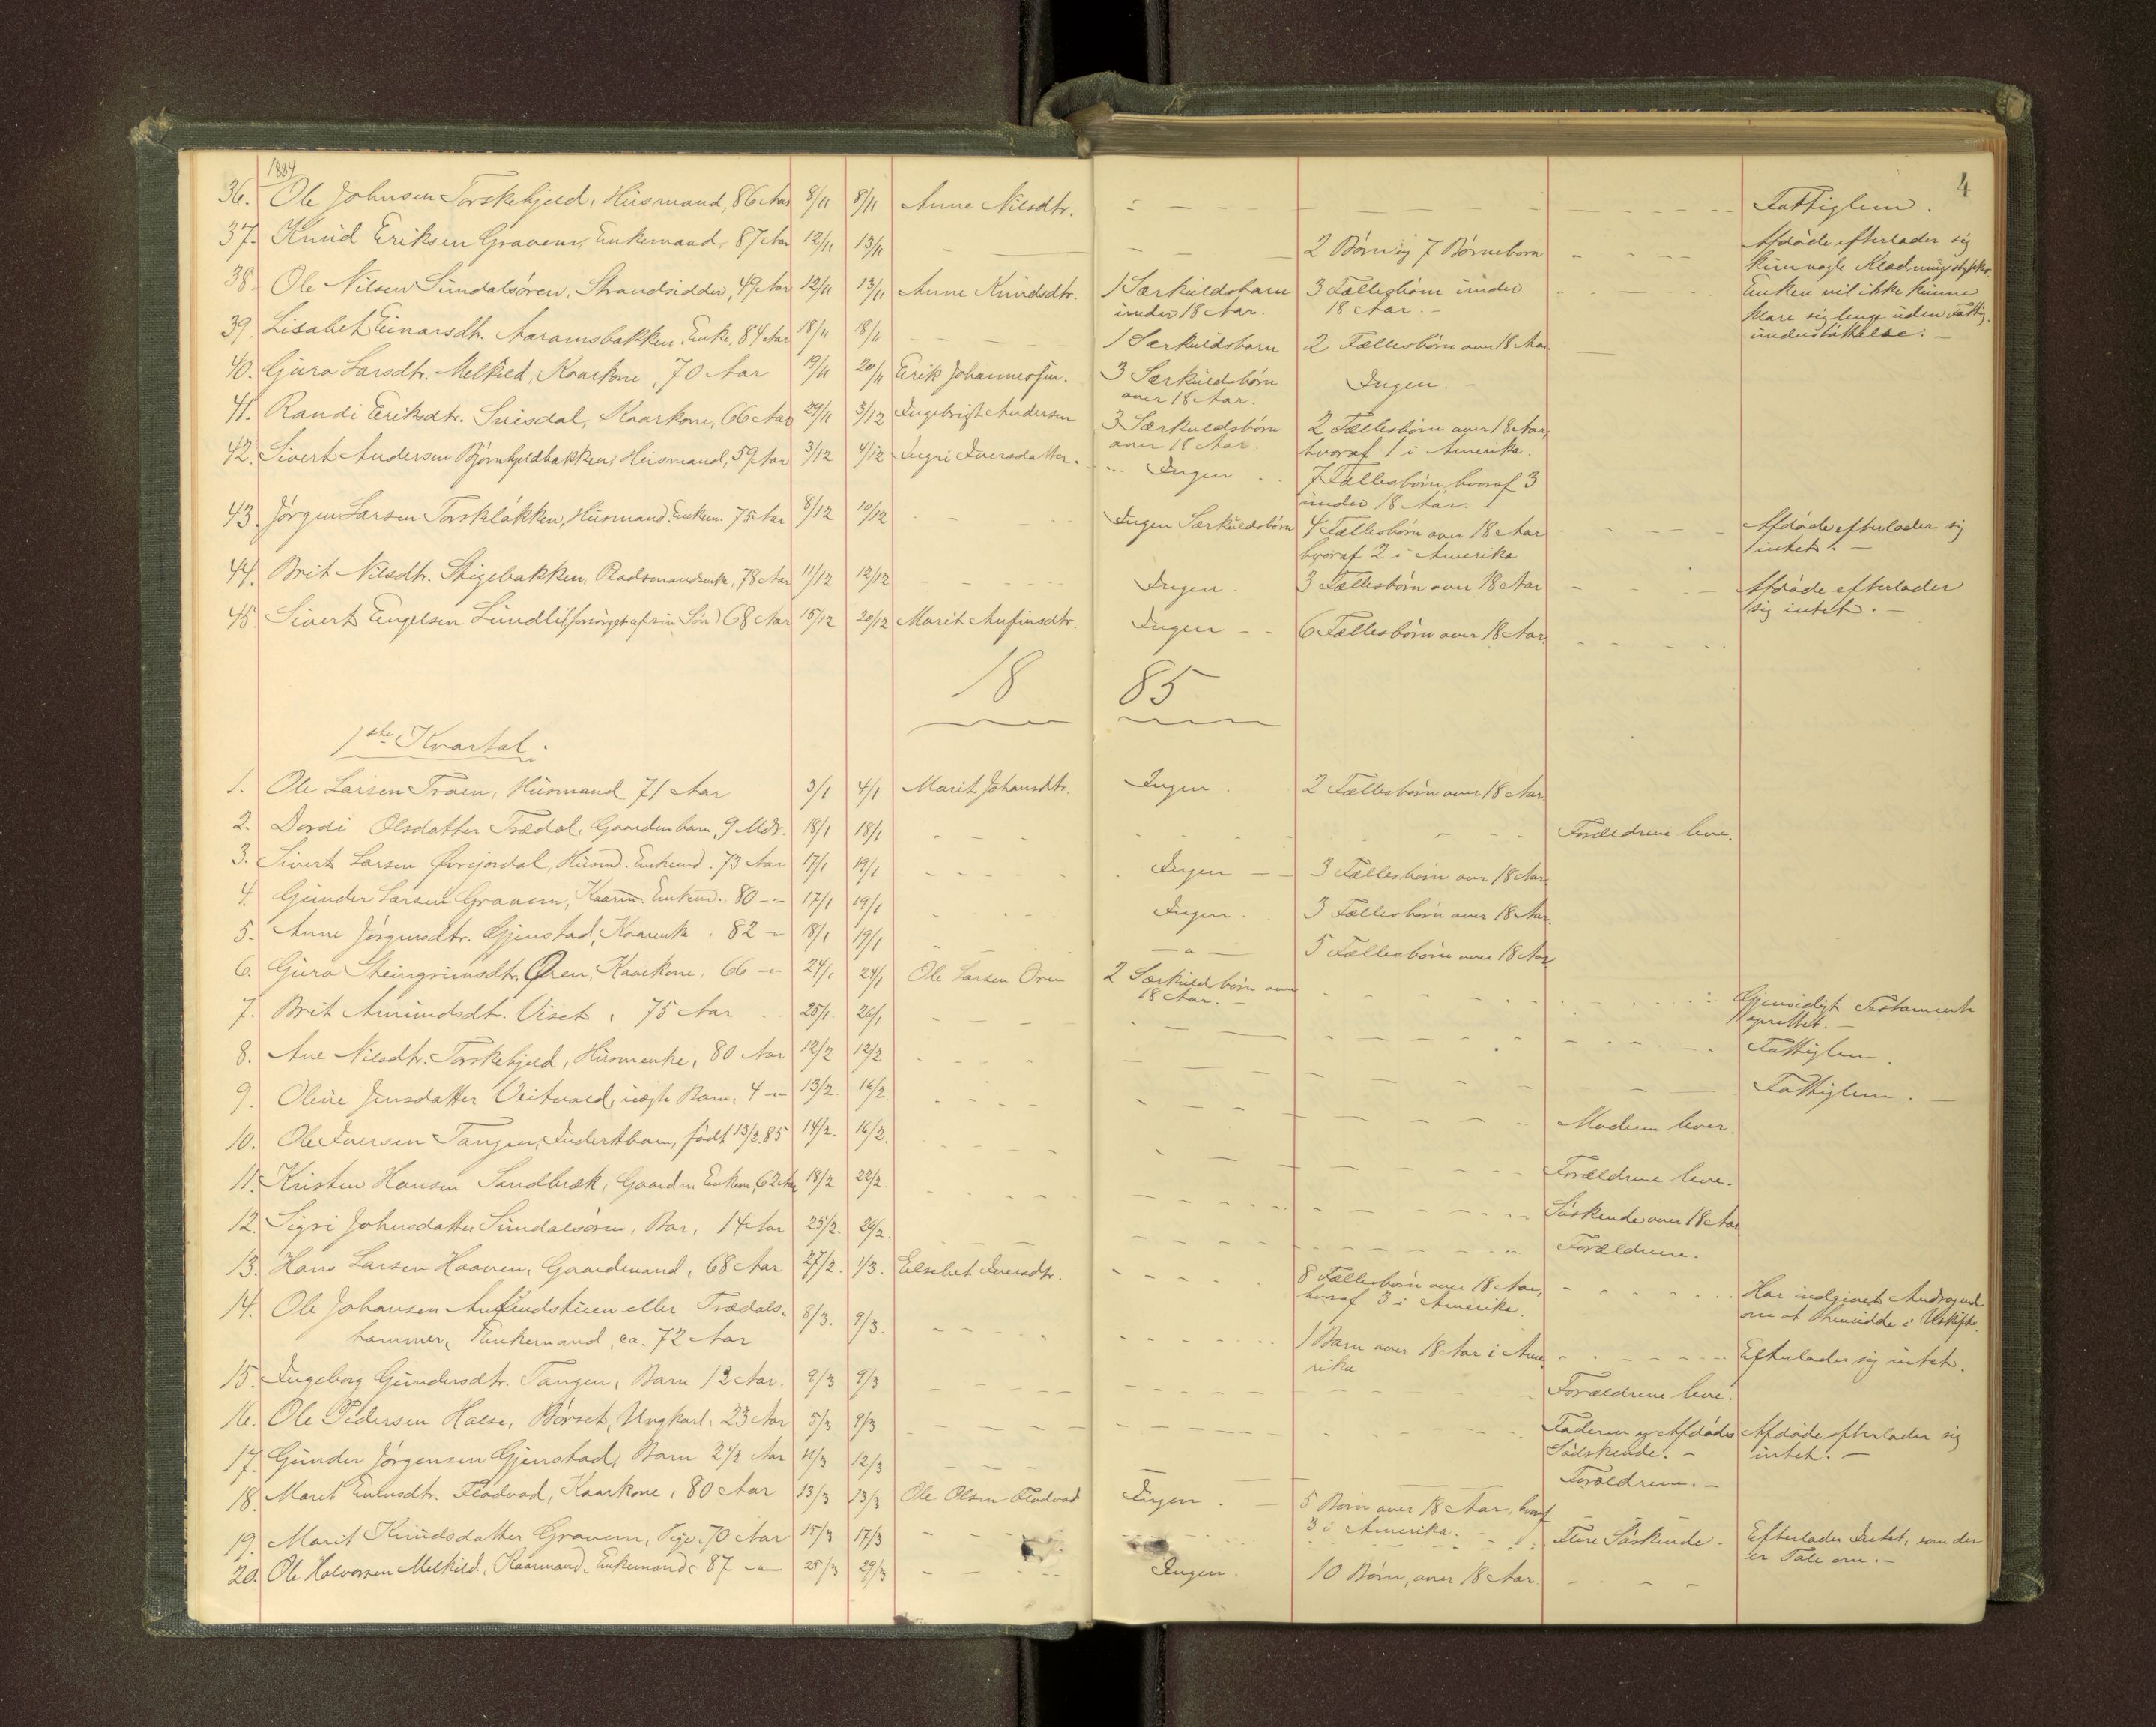 4
1884
36. Ole Johnsen Torskehjeld, Husmand, 86 Aar 8/11 8/11 Anne Nilsdtr. Fattiglem.
37. Knud Eriksen Gravem, Enkemand, 87 Aar 12/11 13/11 2 Børn og 7 Børnebørn Afdøde efterlader sig
kun nogle Klædningsstykker.
38. Ole Nilsen Sundalsøren, Strandsidder, 49 Aar 12/11 13/11 Anne Knudsdtr. 1 Særkuldsbarn 3 Fællesbørn under Enken vil ikke kunne
under 18 Aar. 18 Aar. klare sig længe uden Fattig-
understøttelse.
39. Lisabet Einarsdtr. Aaramsbakken, Enke, 84 Aar 18/11 18/11 1 Særkuldsbarn 2 Fællesbørn over 18 Aar
40. Guro Larsdtr. Melkild, Kaarkone, 70 Aar 19/11 20/11 Erik Johannesen. 3 Særkuldsbørn Ingen.
over 18 Aar.
41. Randi Eriksdtr. Snisdal, Kaarkone, 66 Aar 29/11 3/12 Ingebrigt Andersen 3 Særkuldsbørn 2 Fællesbørn over 18 Aar,
over 18 Aar. hvoraf 1 i Amerika.
42. Sivert Andersen Bjørnhjeldbakken, Husmand, 59 Aar 3/12 4/12 Ingri Iversdatter. Ingen 7 Fællesbørn, hvoraf 3
under 18 Aar.
43. Jørgen Larsen Torskløkken, Husmand. Enkem. 75 Aar 8/12 10/12 Ingen Særkuldsbørn 4 Fællesbørn over 18 Aar Afdøde efterlader sig
hvoraf 2 i Amerika intet.
44. Brit Nilsdtr. Stigebakken, 78 Aar 11/12 12/12 Ingen. 3 Fællesbørn over 18 Aar Afdøde efterlader
sig intet.
45. Sivert Engelsen Lundli (forsørget af sin Søn) 68 Aar 15/12 20/12 Marit Anfinsdtr. Ingen 6 Fællesbørn over 18 Aar.
18 85
1ste Kvartal.
1. Ole Larsen Troen, Husmand 71 Aar 3/1 4/1 Marit Johansdtr. Ingen. 2 Fællesbørn over 18 Aar.
2. Dordi Olsdatter Trædal, Gaardm. barn, 9 Mdr. 18/1 18/1 Forældrene leve.
3. Sivert Larsen Ørejordal, Husmd. Enkemd. 73 Aar 17/1 19/1 Ingen 3 Fællesbørn over 18 Aar.
4. Gunder Larsen Gravem, Kaarm. Enkem. 80 -"- 17/1 19/1 Ingen. 3 Fællesbørn over 18 Aar.
5. Anne Jørgensdtr. Gjenstad, Kaarenke, 82 -"- 18/1 19/1 -"- 5 Fællesbørn over 18 Aar
6. Guro Steingrimsdtr. Øren, Kaarkone, 66 -"- 24/1 24/1 Ole Larsen Øren 2 Særkuldbørn over Gjensidigt Testamente
18 Aar. oprettet.
7. Brit Amundsdtr. Viset, 75 Aar 25/1 26/1 Fattiglem.
8. Ane Nilsdtr. Torskehjeld, Husmenke, 80 Aar 12/2 12/2 Fattiglem.
9. Oline Jensdatter Veitvold, uægte Barn, 4 -"- 13/2 16/2 Moderen lever.
10. Ole Iversen Tangen, Inderstbarn, født 13/2 85 14/2. 16/2. Forældrene leve.
11. Kristen Hansen Sandbræk, Gaardm. Enkem, 62 Aar 18/2 22/2. Søskende over 18 Aar
12. Sigri Johnsdatter Sundalsøren, Bar. 14 Aar 25/2. 26/2. Forældrene.
13. Hans Larsen Haaven, Gaardmand, 68 Aar 27/2. 1/3. Elsebet Iversdtr. 8 Fællesbørn over 18 Aar, Har indgivet Andragende
hvoraf 3 i Amerika. om at hensidde i Uskiftet.
14. Ole Johansen Anfindstuen eller Trædals-
hammer, Enkemand, ca. 72 Aar 8/3. 9/3. 1 Barn over 18 Aar i Ame- Efterlader sig intet.
rika
15. Ingeborg Gundersdtr. Tangen, Barn 12 Aar. 9/3 9/3 Forældrene leve.
16. Ole Pedersen Halse, Børset, Ungkarl, 23 Aar 5/3 9/3 Faderen og Afdødes Afdøde efterlader sig
Sødskende. intet.
17. Gunder Jørgensen Gjenstad, Barn 2 1/2 Aar 11/3 12/3 Forældrene.
18. Marit Evensdtr. Flodvad, Kaarkone, 80 Aar 13/3 13/3 Ole Olsen Flodvad Ingen. 5 Børn over 18 Aar, hvoraf
3 i Amerika.
19. Marit Knudsdatter Gravem, Pige. 70 Aar 15/3 17/3 Flere Søskende. Efterlader Intet, som der
er Tale om.
20. Ole Halvorsen Melkild, Kaarmand, Enkemand, 87 -"- 25/3 29/3 Ingen. 10 Børn, over 18 Aar.